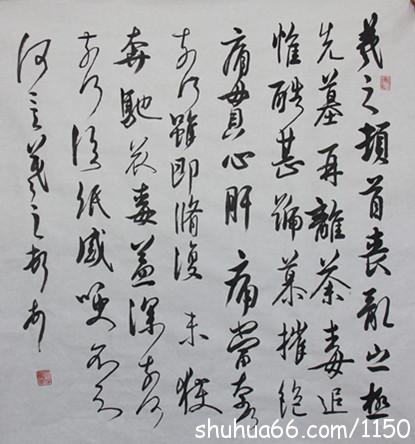 羲之頓首喪亂之極
先墓再離荼毒追
惟酷甚號慕摧絕
痛貫心肝痛當奈何
奈何雖即脩復未獲
奔馳哀毒益深奈何
奈何臨紙感哽不知
何言羲之頓首
shuhua66.com/1150